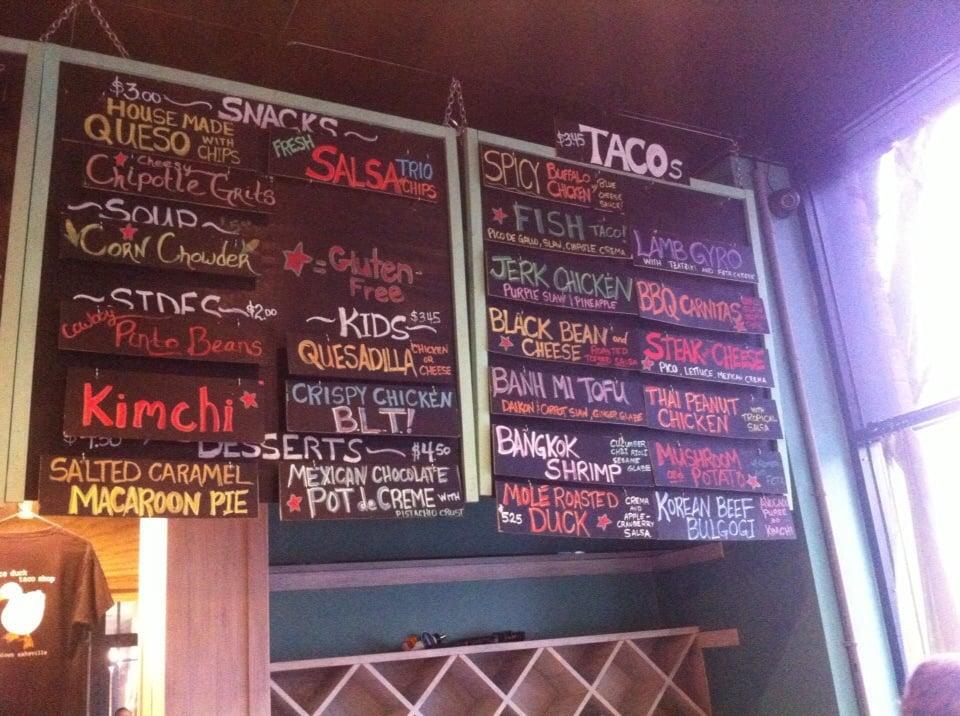 $3.00
SNACKS
HOUSE MADE
QUESO WITH
CHIPS
FRESH
SALSA TRIO
CHIPS
Cheesy
Chipotle Grits
SOUP
Corn Chowder
= Gluten-
Free
SIDES $2.00
Cowboy
Pinto Beans
Kimchi
KIDS $3.45
QUESADILLA CHICKEN
OR
CHEESE
CRISPY CHICKEN
BLT!
DESSERTS $4.50
SALTED CARAMEL
MACAROON PIE
MEXICAN CHOCOLATE
POT de CREME WITH
PISTACHIO CRUST
$3.45 TACOS
SPICY BUFFALO
CHICKEN W/ BLUE
CHEESE
SAUCE!
FISH TACO!
PICO DE GALLO, SLAW, CHIPOTLE CREMA
JERK CHICKEN
PURPLE SLAW / PINEAPPLE
BLACK BEAN and
CHEESE ROASTED
TOMATO SALSA
BANH MI TOFU
DAIKON & CARROT SLAW, GINGER GLAZE
BANGKOK
SHRIMP
CUCUMBER
CHILI AIOLI
SESAME
GLAZE
MOLÉ ROASTED
$5.25 DUCK
CREMA
AND
APPLE-
CRANBERRY
SALSA
LAMB GYRO
WITH TZATZIKI AND FETA CHEESE
BBQ CARNITAS
STEAK & CHEESE
PICO, LETTUCE, MEXICAN CREMA
THAI PEANUT
CHICKEN WITH
TROPICAL
SALSA
MUSHROOM
and POTATO
FETA
KOREAN BEEF
BULGOGI
ASIAN
PUREE
KIMCHI
ce duck
taco shop
asheville